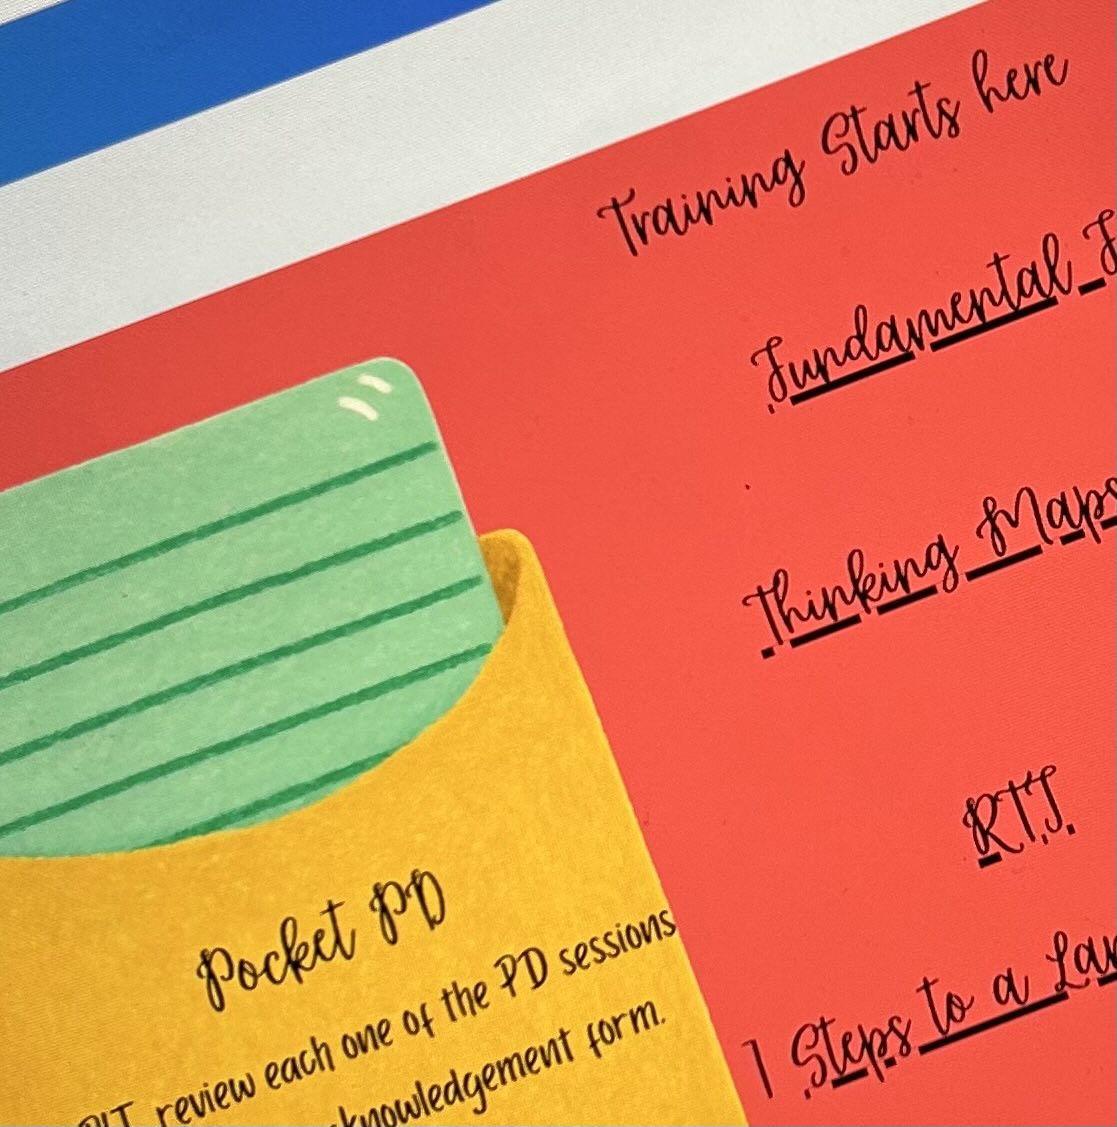 Training Starts here
Fundamental
Thinking Maps
RTI
7 Steps to a
Pocket PD
review each one of the PD sessions
form.